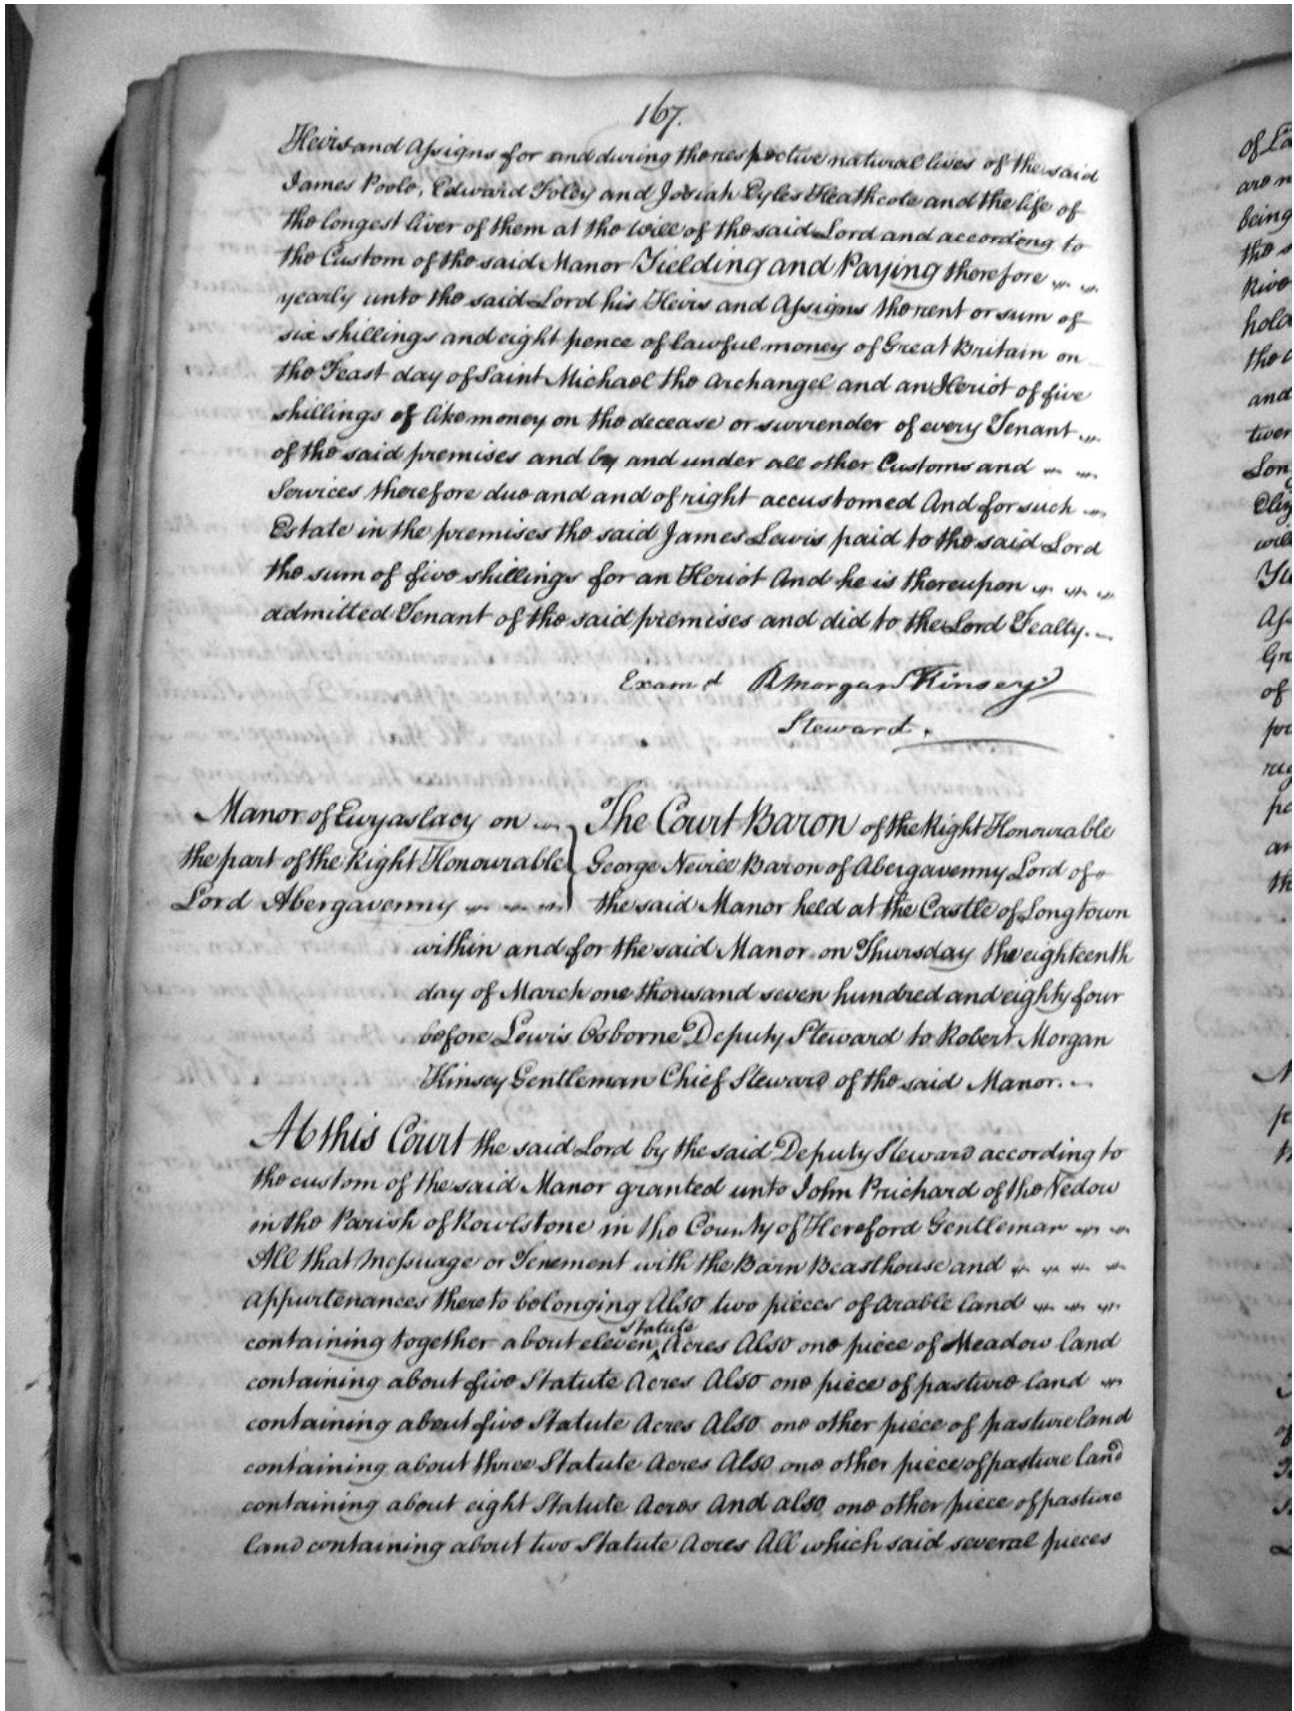 167.
Heirs and Assigns for and during the respective natural lives of the said
James Poole, Edward Foley and Josiah Eyles Heathcote and the life of
the longest liver of them at the will of the said Lord and according to
the Custom of the said Manor Yielding and Paying therefore
yearly unto the said Lord his Heirs and Assigns the rent or sum of
six shillings and eight pence of lawful money of Great Britain on
the Feast day of Saint Michael the Archangel and an Heriot of five
shillings of like money on the decease or surrender of every Tenant
of the said premises and by and under all other Customs and
Services therefore due and and of right accustomed And for such
Estate in the premises the said James Lewis paid to the said Lord
the sum of five shillings for an Heriot And he is thereupon
admitted Tenant of the said premises and did to the Lord Fealty.
Exam d R Morgan Kinsey
Steward.
Manor of Ewyaslacy on
the part of the Right Honourable
Lord Abergavenny
The Court Baron of the Right Honourable
George Nevill Baron of Abergavenny Lord of
the said Manor held at the Castle of Longtown
within and for the said Manor on Thursday the eighteenth
day of March one thousand seven hundred and eighty four
before Lewis Osborne Deputy Steward to Robert Morgan
Kinsey Gentleman Chief Steward of the said Manor.
At this Court the said Lord by the said Deputy Steward according to
the custom of the said Manor granted unto John Prichard of the Nedow
in the Parish of Rowlstone in the County of Hereford Gentleman
All that Messuage or Tenement with the Barn Beasthouse and
appurtenances thereto belonging Also two pieces of Arable land
containing together about eleven Statute Acres Also one piece of Meadow land
containing about five Statute Acres Also one piece of pasture land
containing about five Statute Acres Also one other piece of pasture land
containing about three Statute Acres Also one other piece of pasture land
containing about eight Statute Acres And also one other piece of pasture
land containing about two Statute Acres All which said several pieces